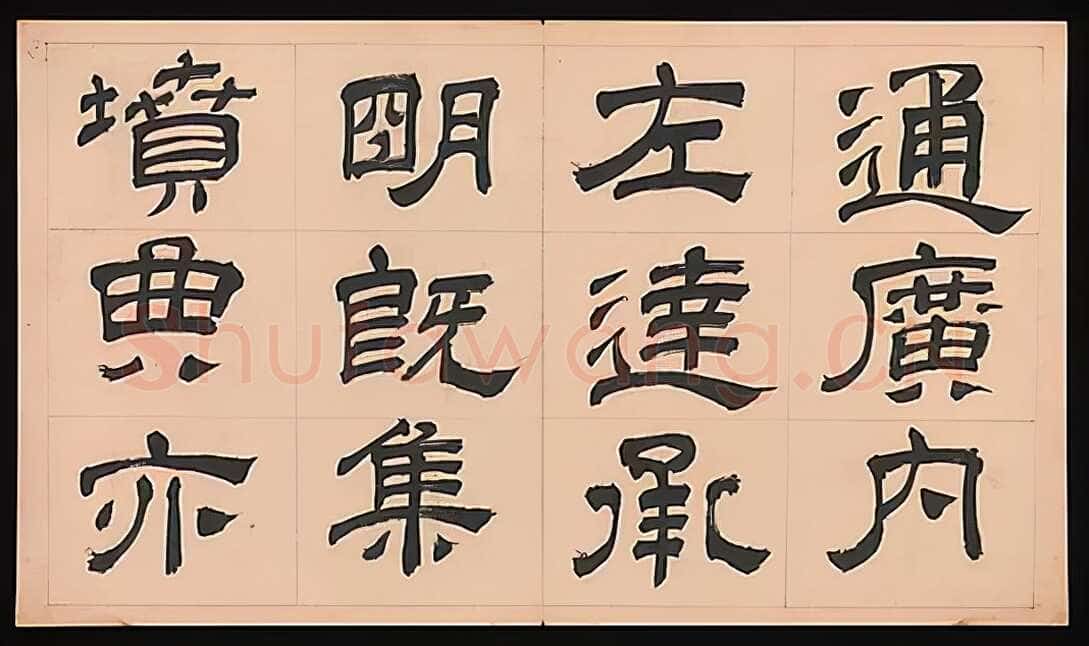 通廣內
左達承
明既集
墳典亦
Shufawang.cn